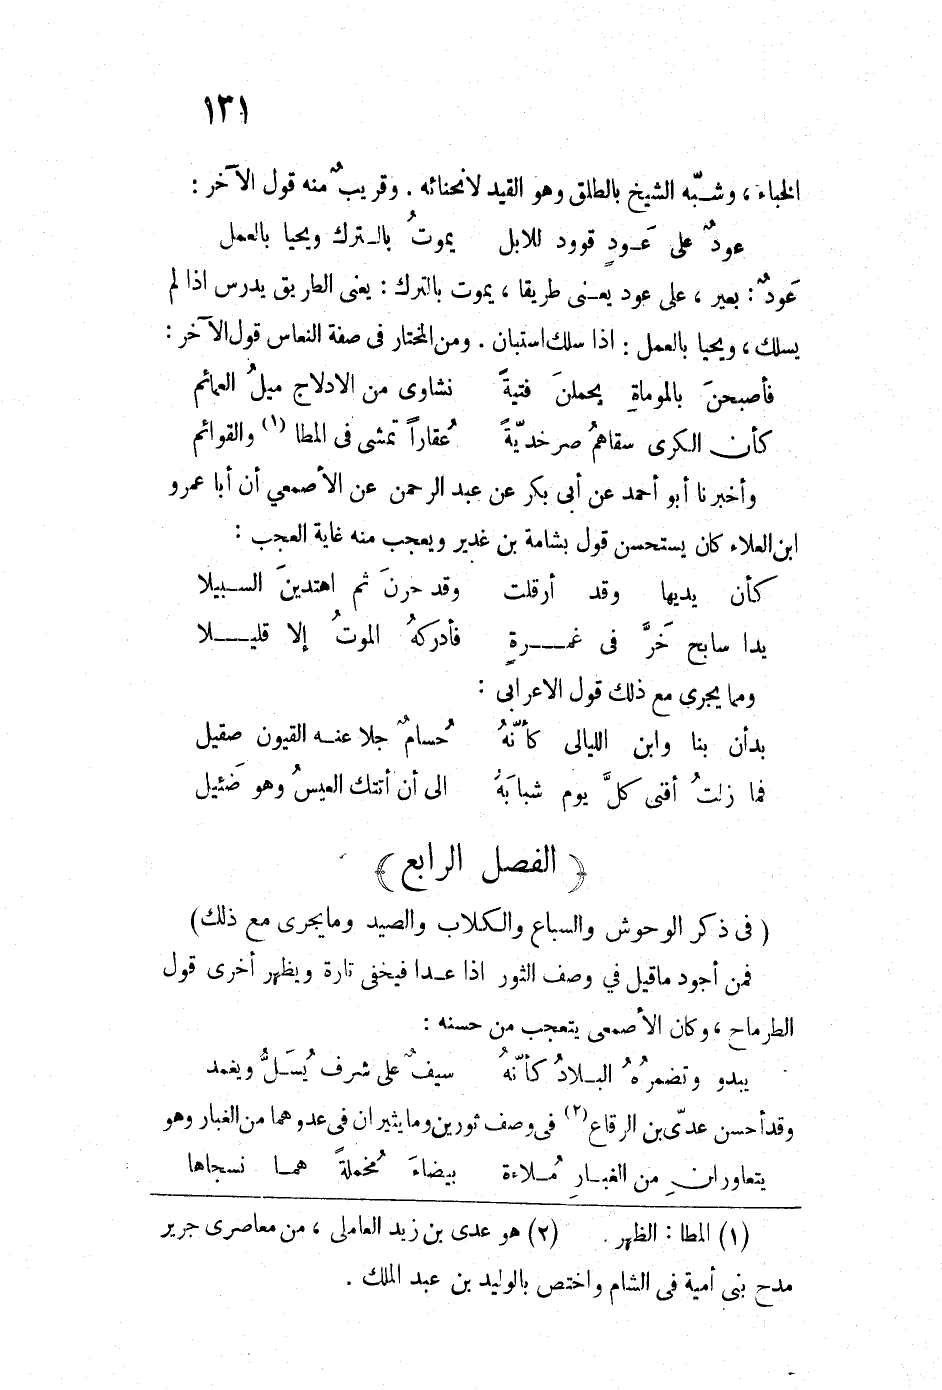 ١٣١
الخباء ، وشـبّه الشيخ بالطلق وهو القيد لانحنائه . وقريبٌ منه قول الآخر :
عودٌ على عَـودٍ قوود للابل يموتُ بالـترك ويحيا بالعمل
عَودٌ : بعير ، على عود يعـنى طريقا ، يموت بالترك : يعنى الطريق يدرس اذا لم
يسلك ، ويحيا بالعمل : اذا سلك استبان . ومن المختار فى صفة النعاس قول الآخر :
فأصبحنَ بالموماةِ يحملنَ فتيةً نشاوى من الادلاج ميلُ العمائم
كأن الكرى سقاهمُ صرخديّةً عُقاراً تمشى فى المطا (١) والقوائم
وأخبرنا أبو أحمد عن أبى بكر عن عبد الرحمن عن الأصمعي أن أبا عمرو
ابن العلاء كان يستحسن قول بشامة بن غدير ويعجب منه غاية العجب :
كأن يديها وقد أرقلت وقد حرنَ ثم اهتدينَ السـبيلا
يدا سابح خَرَّ فى غمـــرةٍ فأدركهُ الموتُ إلا قليـــلا
ومما يجرى مع ذلك قول الاعرابى :
بدأن بنا وابن الليالى كأنّهُ حُسامٌ جلا عنـه القيون صقيل
فما زلتُ أفنى كلَّ يوم شبابَهُ الى أن أتتك العيسُ وهو ضَئيل
﴿ الفصل الرابع ﴾
( فى ذكر الوحوش والسباع والكلاب والصيد ومايجرى مع ذلك)
فمن أجود ماقيل في وصف الثور اذا عـدا فيخفى تارة ويظهر أخرى قول
الطرماح ، وكان الأصمعى يتعجب من حسنه :
يبدو وتضمرُهُ البـلادُ كأنّهُ سيفٌ على شرف يُسَلُّ ويغمد
وقد أحسن عدىّ بن الرقاع (٢) فى وصف ثورين وما يثيران فى عدوهما من الغبار وهو
يتعاوران من الغبـارِ مُـلاءة بيضاءَ مُخملةً همـا نسجاها
(١) المطا : الظهر . (٢) هو عدى بن زيد العاملى ، من معاصرى جرير
مدح بنى أمية فى الشام واختص بالوليد بن عبد الملك .